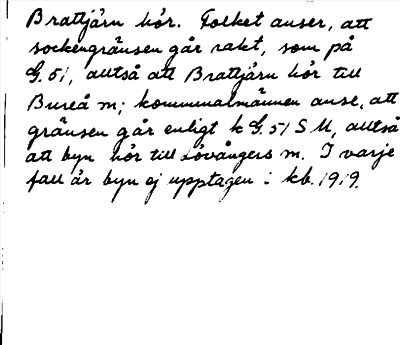 Brattjärn hör. Folket anser, att
sockengränsen går rakt, som på
G. 51, alltså att Brattjärn hör till
Bureå m; kommunalmännen anse, att
gränsen går enligt k G. 51 S M, alltså
att byn hör till Lövångers m. I varje
fall är byn ej upptagen i kb. 1919.